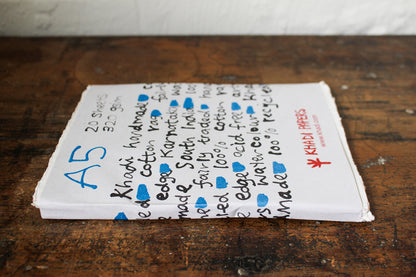 A5
20 sheets
320 gsm
Khadi handmade
cotton rag
edge Karnataka
made South India
fairly traded
100% cotton
edge acid free
watercolour
made 100% recycled
KHADI PAPERS
www.khadi.com